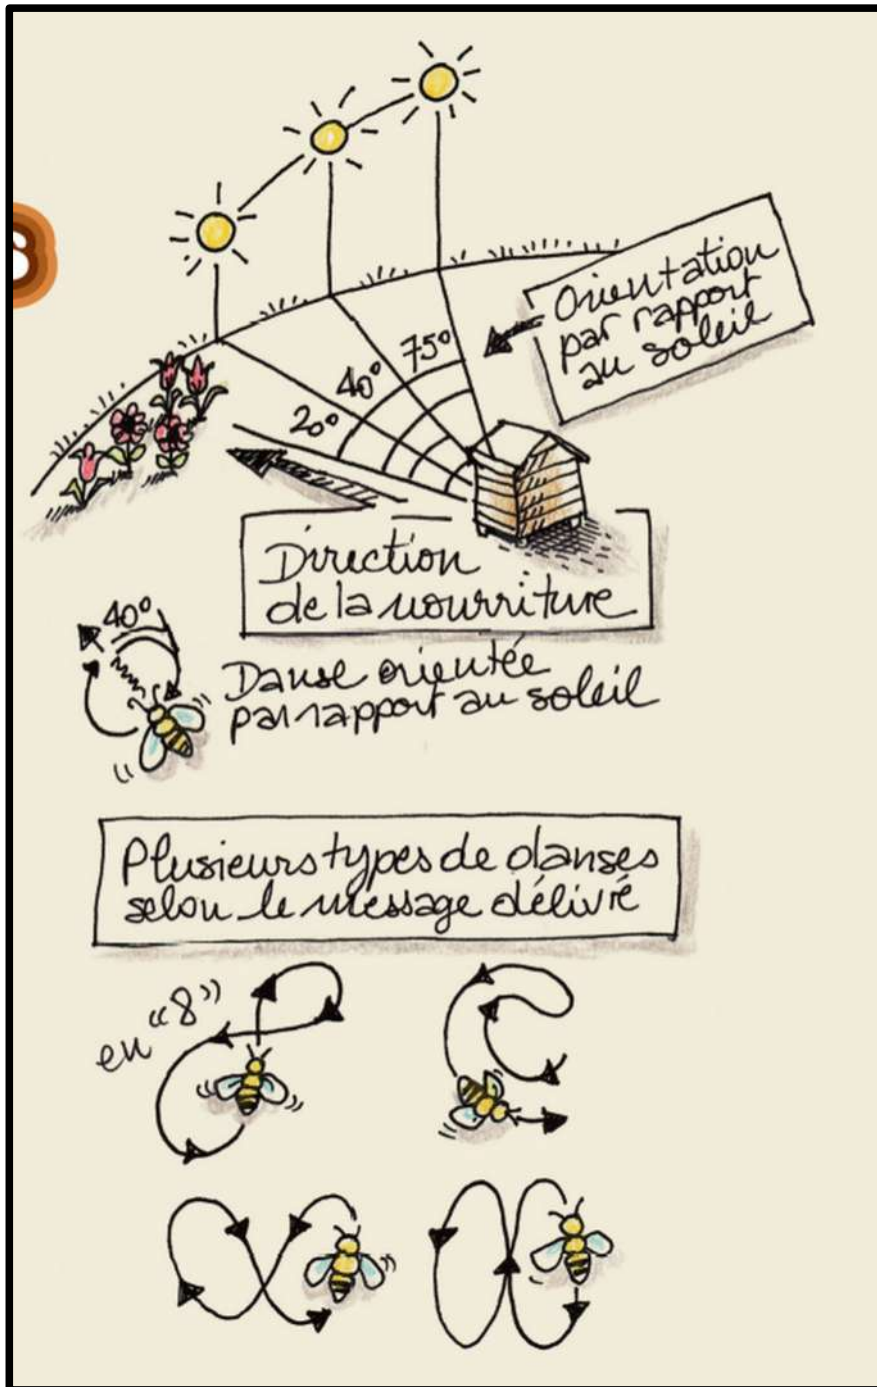 S
Orientation
par rapport
au soleil
75°
40°
20°
Direction
de la nourriture
40°
Danse orientée
par rapport au soleil
Plusieurs types de danses
selon le message délivré
en "8"